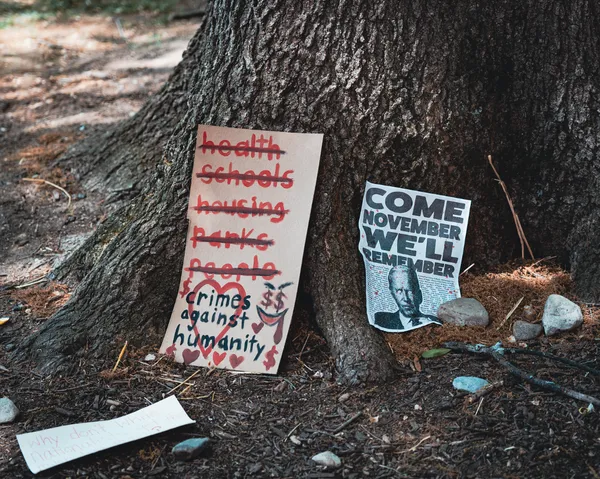 health
schools
housing
parks
people
crimes
against
humanity
COME
NOVEMBER
WE'LL
REMEMBER
why don't